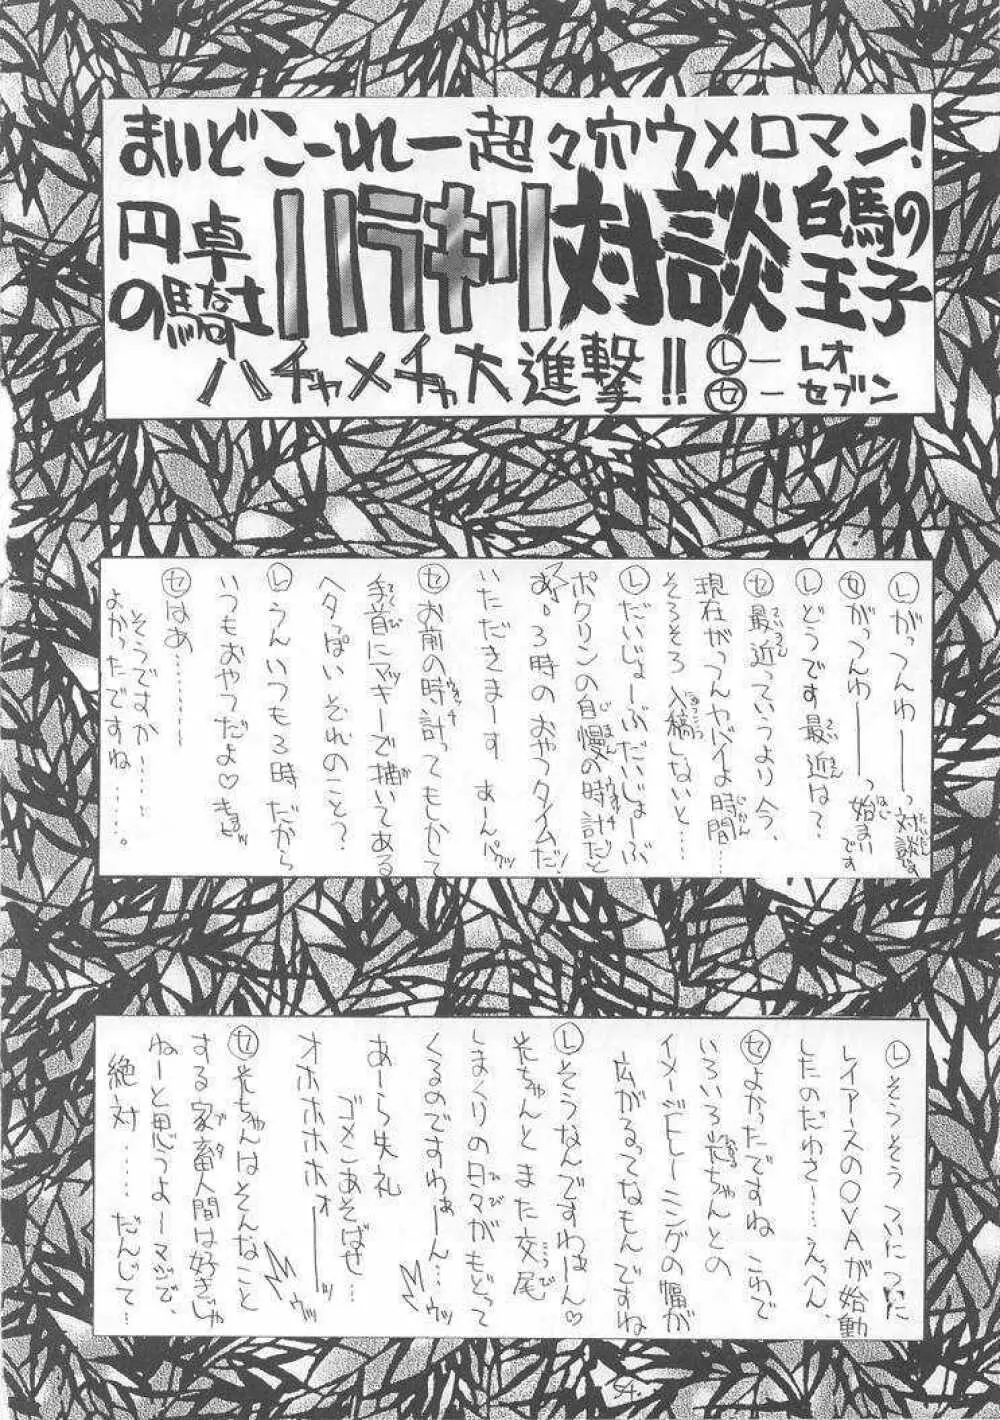 まいどこーれー超々穴ウメロマン!
円卓の騎士
ハラキリ対談
白馬の王子
ハチャメチャ大進撃!!
Ⓛ— レオ
㋝— セブン
Ⓛがってんわ———っ対談です
㋝がってんわ———っ始まいです
Ⓛどうです最近は?
㋝最近っていうより今、
現在がってんヤバイよ時間…
そろそろ入稿しないと…
Ⓛだいじょーぶだいじょーぶ
ポクリンの自慢の時計だと
あっ3時のおやつタイムだ!
いただきまーす あーんパクッ
㋝お前の時計ってもかして
手首にマッキーで描いてある
ヘタっぱいそれのこと?
Ⓛうんいつも3時だから
いつもおやつだよ♡
㋝はあ………
そうですか……
よかったですね……。
Ⓛそうそうついについに
レイアースのOVAが始動
したのだわさー…えっへん
㋝よかったですね これで
いろいろ光ちゃんとの
イメージトレーミングの幅が
広がるってなもんですね
Ⓛそうなんですわぁーん♡
光ちゃんとまた交尾
しまくりの日々がもどって
くるのですわぁーん…
あーら失礼
ゴメンあそばせ…
オホホホホォ———ッ
㋝光ちゃんはそんなこと
する家畜人間は好きじゃ
ねーと思うよーマジで、
絶対……だんじて…